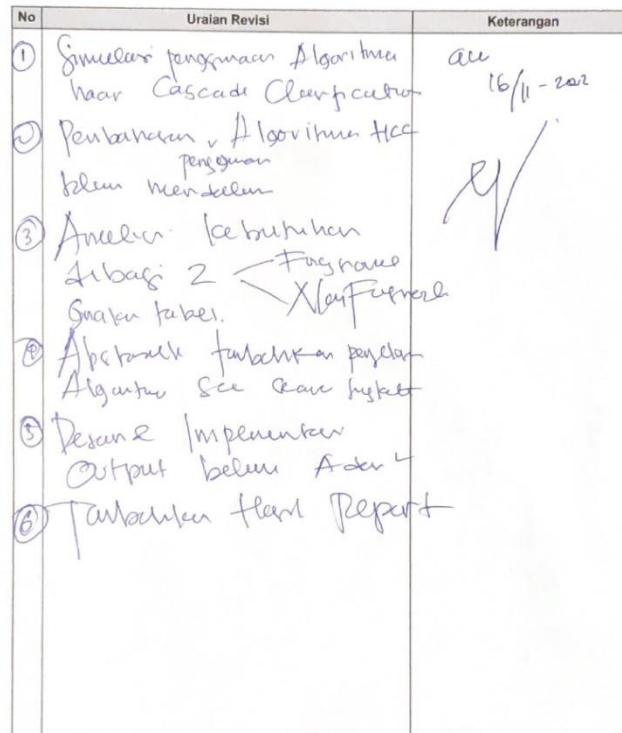 No Uraian Revisi Keterangan
① Simulasi penggunaan Algoritma
haar Cascade Clasification
acc
16/11-2022
② Pembahasan Algoritma HCC
penggunaan
belum mendalam
③ Analisis kebutuhan
dibagi 2
Fungsional
Non Fungsional
Gunakan tabel.
④ Abstrak tambahkan penjelasan
Algoritma secara singkat
⑤ Desain & Implementasi
Output belum Ada
⑥ Tambahkan Hasil Report